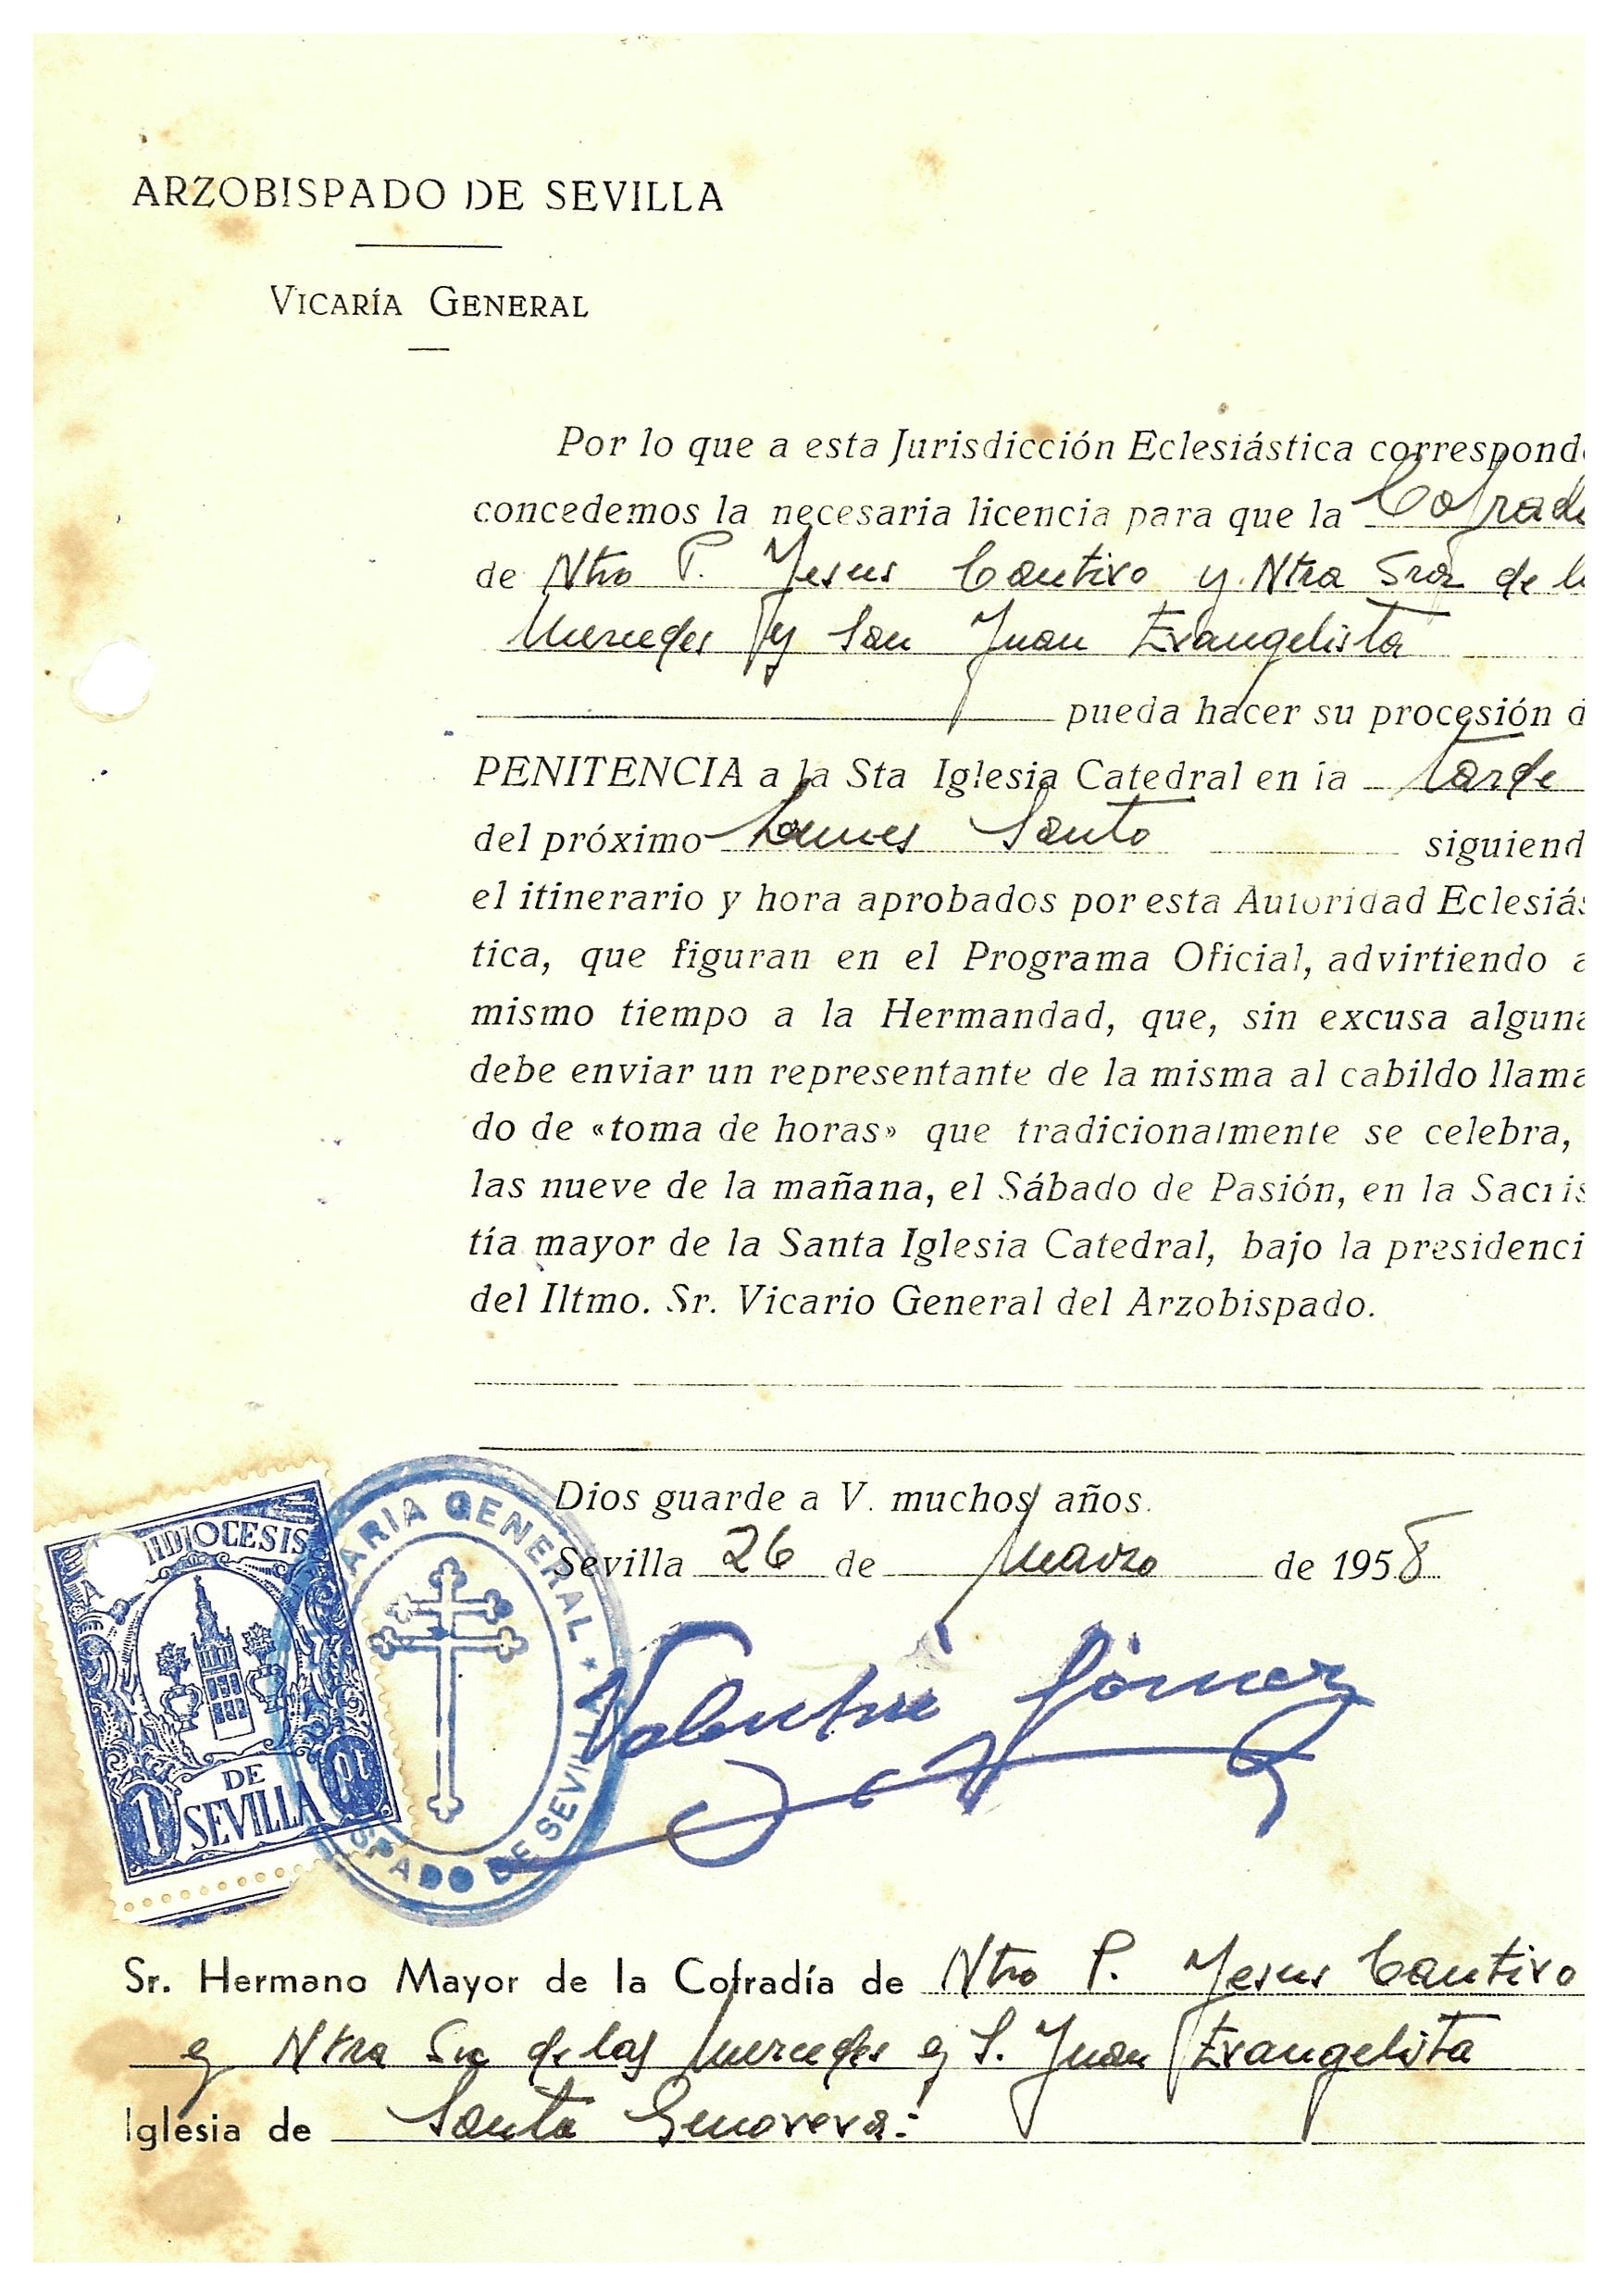 ARZOBISPADO DE SEVILLA
VICARÍA GENERAL
Por lo que a esta Jurisdicción Eclesiástica correspond
concedemos la necesaria licencia para que la Cofradí
de Ntro P. Jesus Cautivo y Ntra Sra de l
Mercedes y San Juan Evangelista
pueda hacer su procesión d
PENITENCIA a la Sta Iglesia Catedral en la tarde
del próximo Lunes Santo siguiend
el itinerario y hora aprobados por esta Autoridad Eclesiás
tica, que figuran en el Programa Oficial, advirtiendo a
mismo tiempo a la Hermandad, que, sin excusa alguna
debe enviar un representante de la misma al cabildo llama
do de «toma de horas» que tradicionalmente se celebra,
las nueve de la mañana, el Sábado de Pasión, en la Sacris
tía mayor de la Santa Iglesia Catedral, bajo la presidenci
del Iltmo. Sr. Vicario General del Arzobispado.
Dios guarde a V. muchos años.
Sevilla 26 de Marzo de 1958
Valentín Gómez
A HIDIOCESIS
DE
SEVILLA
1 Pt
ARIA GENERAL * SPADO DE SEVILLA *
Sr. Hermano Mayor de la Cofradía de Ntro P. Jesus Cautivo
y Ntra Sra de las Mercedes y S. Juan Evangelista
Iglesia de Santa Genoveva.